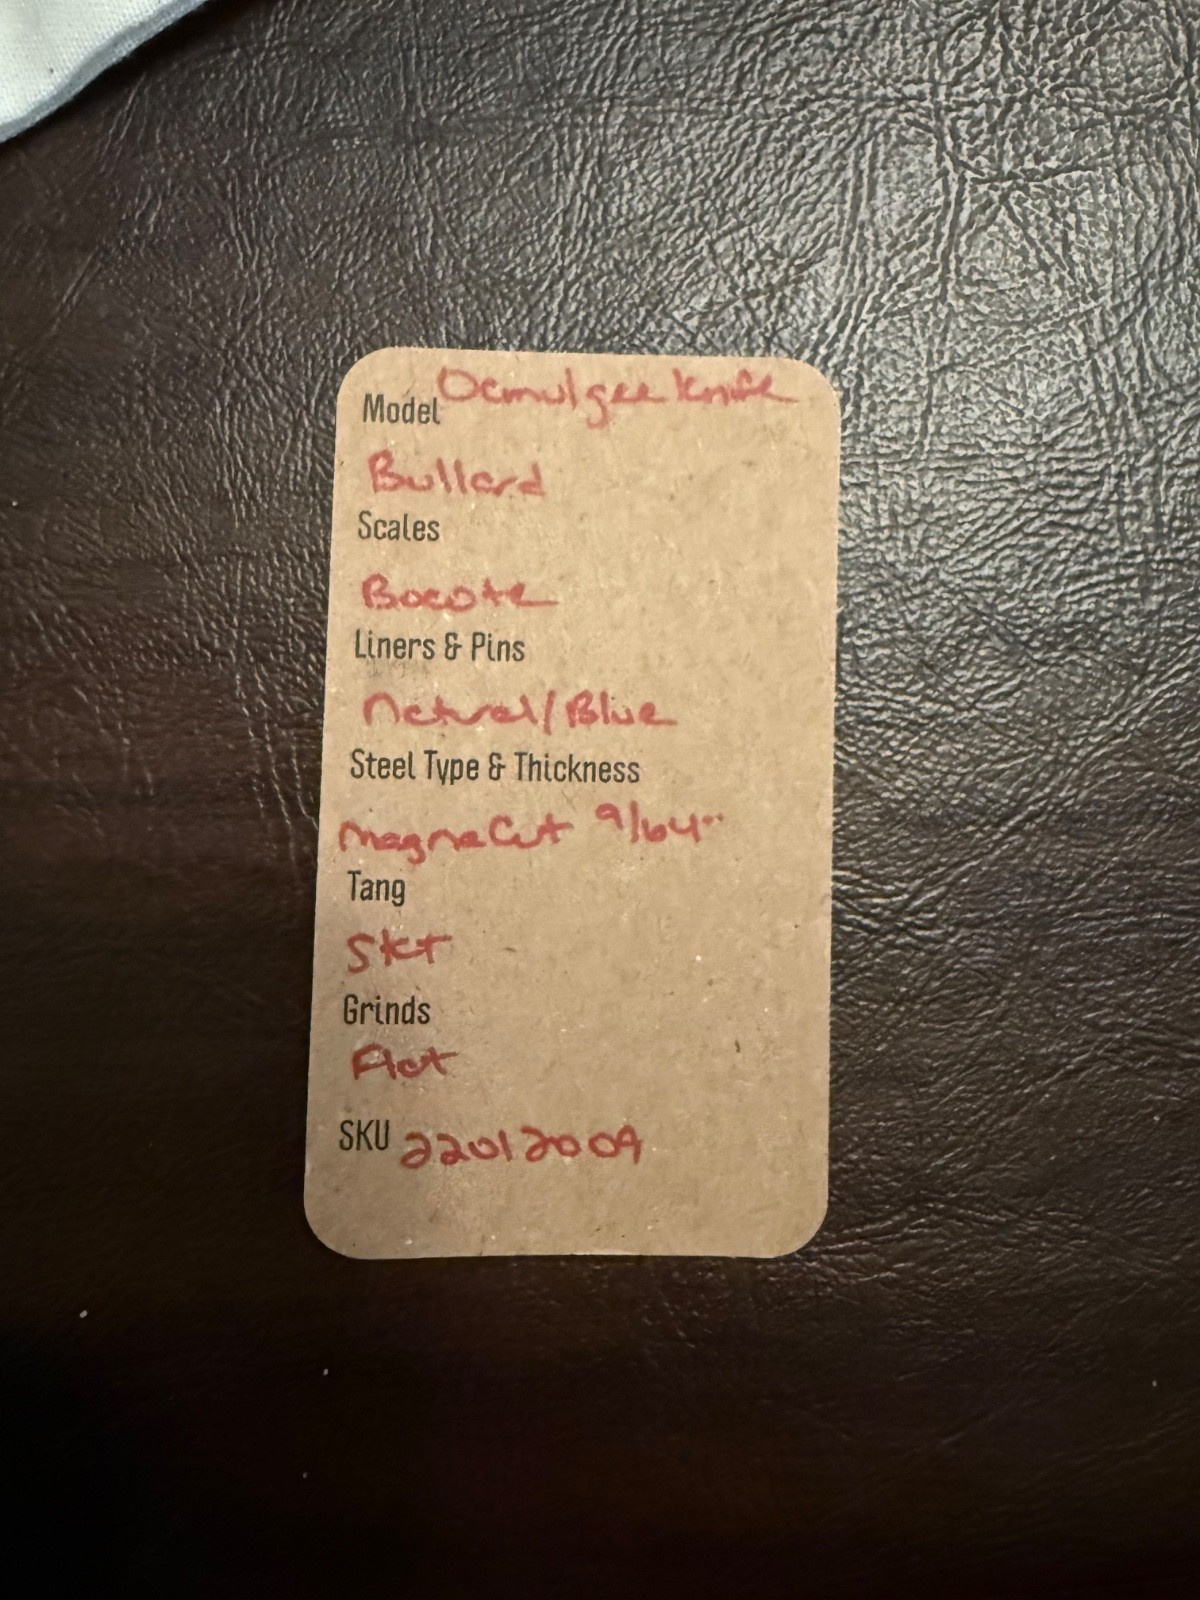 Model Ocmulgee Knife
Bullard
Scales
Bocote
Liners & Pins
Natural/Blue
Steel Type & Thickness
MagnaCut 9/64"
Tang
SKT
Grinds
Flat
SKU 22012009